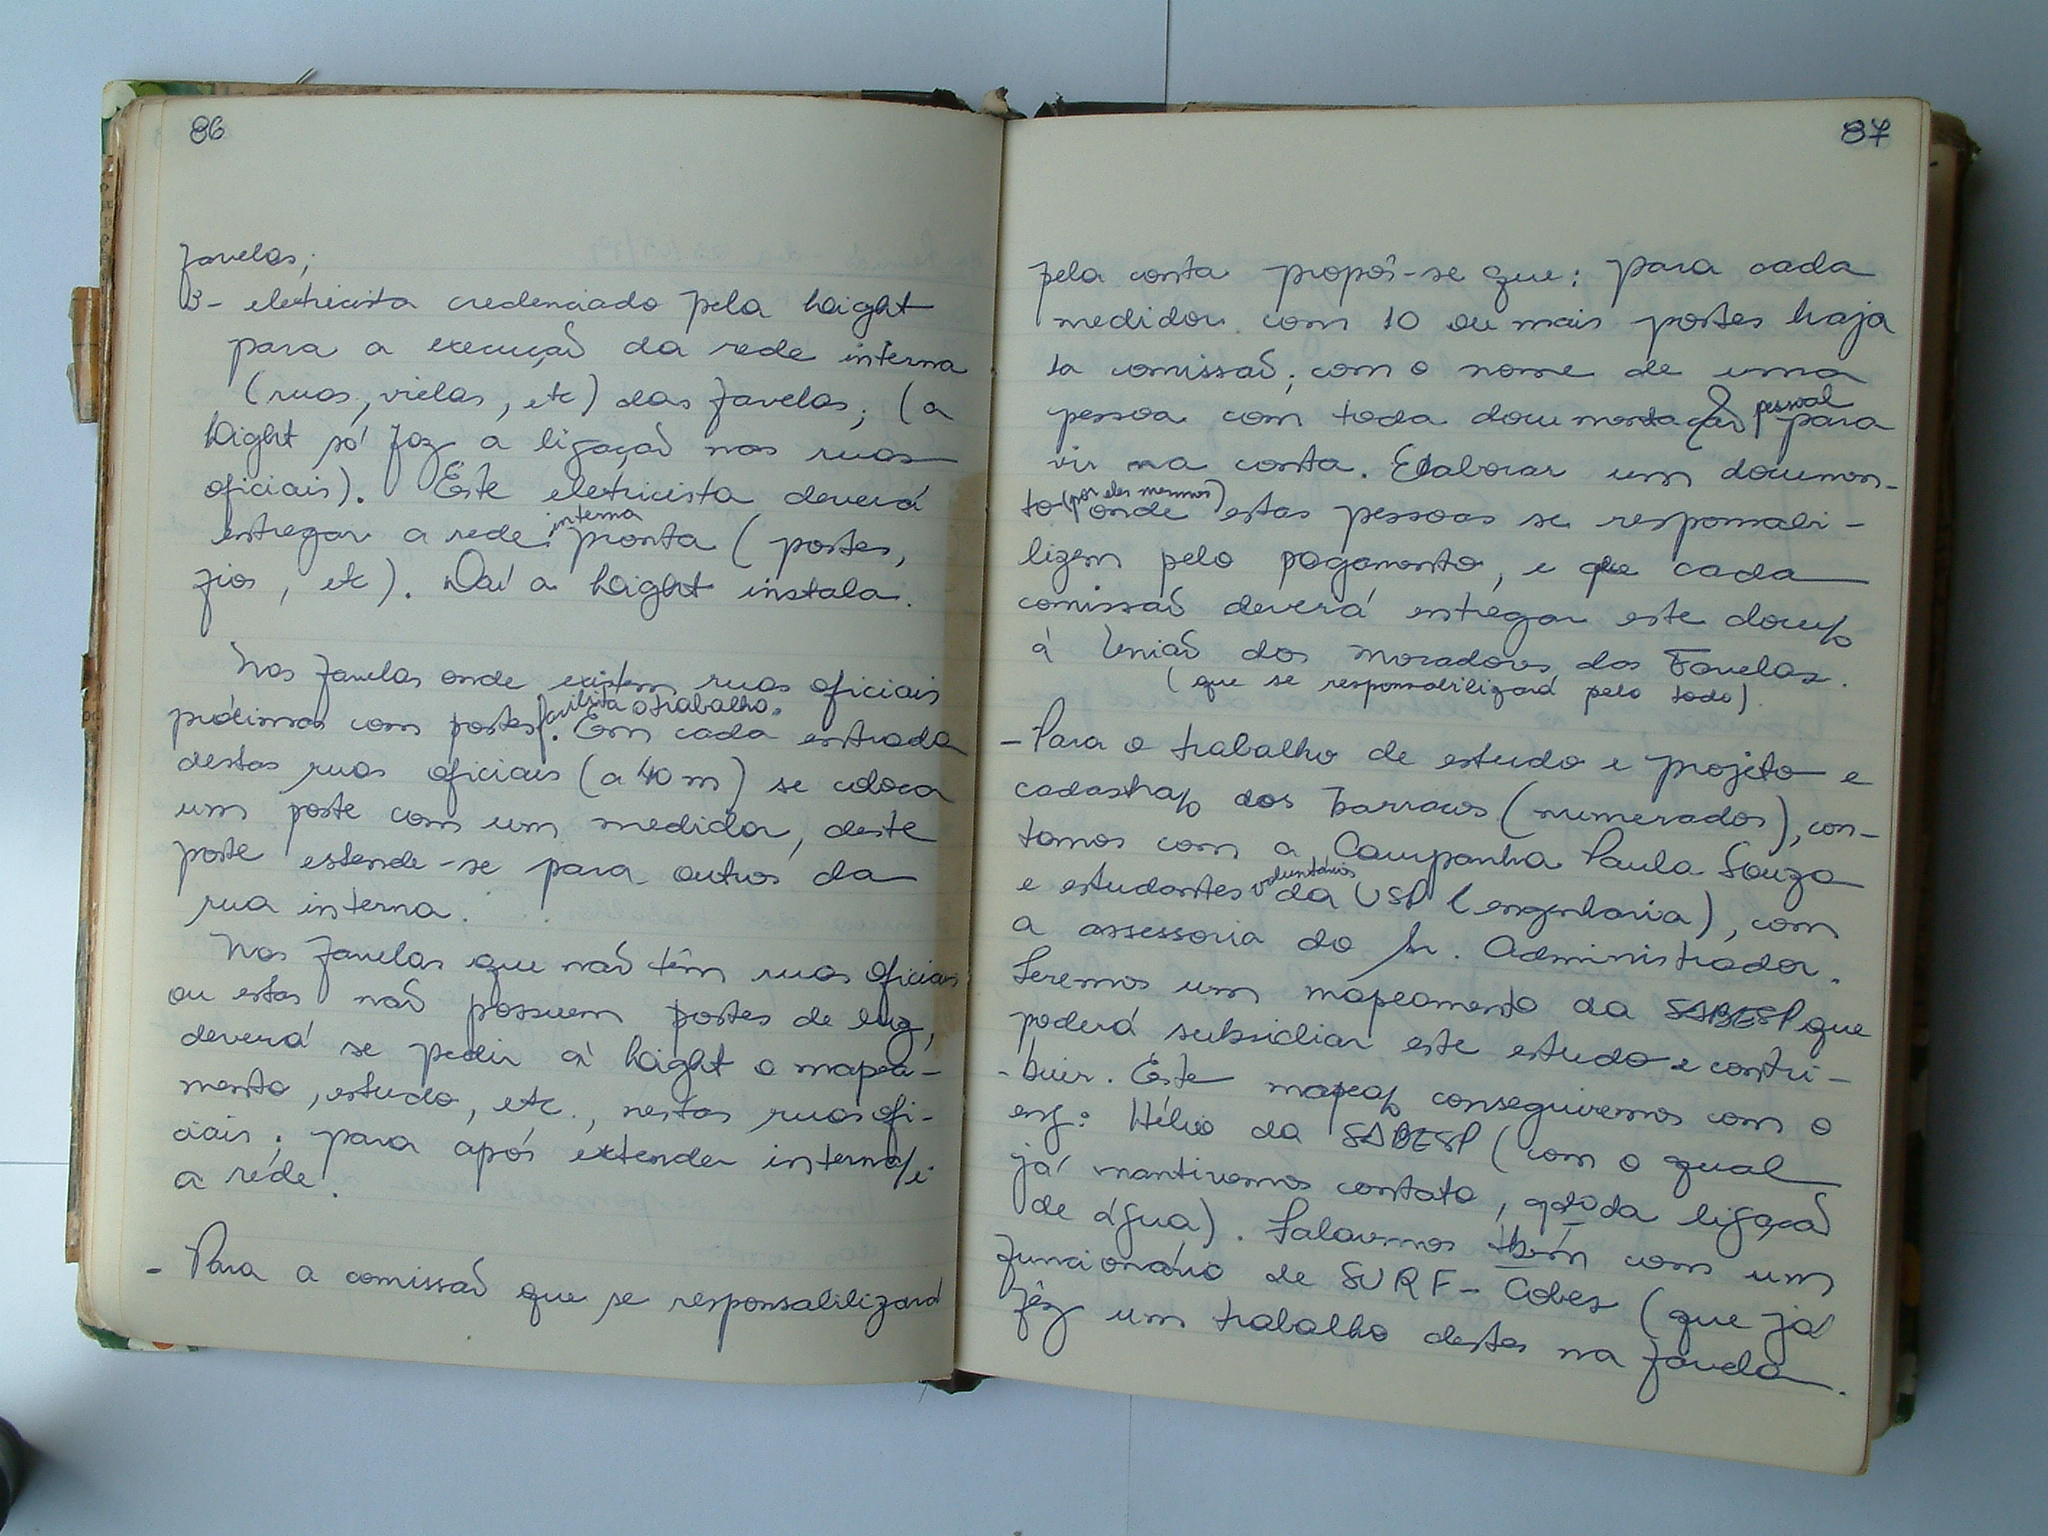 86
favelas;
3- eletricista credenciado pela Light
para a execução da rede interna
(ruas, vielas, etc) das favelas; (a
Light só faz a ligação nas ruas
oficiais). Este eletricista deverá
entregar a rede interna pronta (postes,
fios, etc). Daí a Light instala.
Nas favelas onde existem ruas oficiais
próximas com postes facilita o trabalho. Em cada entrada
destas ruas oficiais (a 40 m) se coloca
um poste com um medidor, deste
poste estende-se para outros da
rua interna.
Nas favelas que não têm ruas oficiais
ou estas não possuem postes de luz,
deverá se pedir à Light o mapea-
mento, estudo, etc., nestas ruas ofi-
ciais; para após extender interna/e
a rede.
- Para a comissão que se responsabilizará
87
pela conta propôs-se que: para cada
medidor com 10 ou mais postes haja
1a comissão; com o nome de uma
pessoa com toda documentação pessoal para
vir na conta. Elaborar um documen-
to (por eles mesmos) onde estas pessoas se responsabi-
lizem pelo pagamento, e que cada
comissão deverá entregar este docu/o
à União dos Moradores das Favelas.
(que se responsabilizará pelo todo)
- Para o trabalho de estudo e projeto e
cadastra/o dos barracos (numerados), con-
tamos com a Campanha Paula Souza
e estudantes voluntários da USP (engenharia), com
a assessoria do Sr. Administrador.
Teremos um mapeamento da SABESP que
poderá subsidiar este estudo e contri-
-buir. Este mapea/o conseguiremos com o
eng: Hélio da SABESP (com o qual
já mantivemos contato, qdo da ligação
de água). Falaremos tbém com um
funcionário de SURF - Cobes (que já
fêz um trabalho destes na favela.